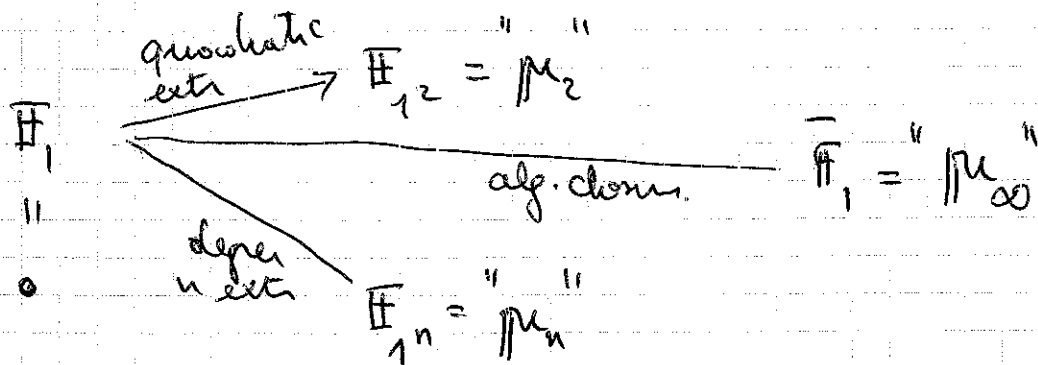 quadratic
extn
𝔽₁ 𝔽₁² = "μ₂"
alg. closure. 𝔽̄₁ = "μ∞"
"
•
degree
n extn
𝔽₁ⁿ = "μₙ"